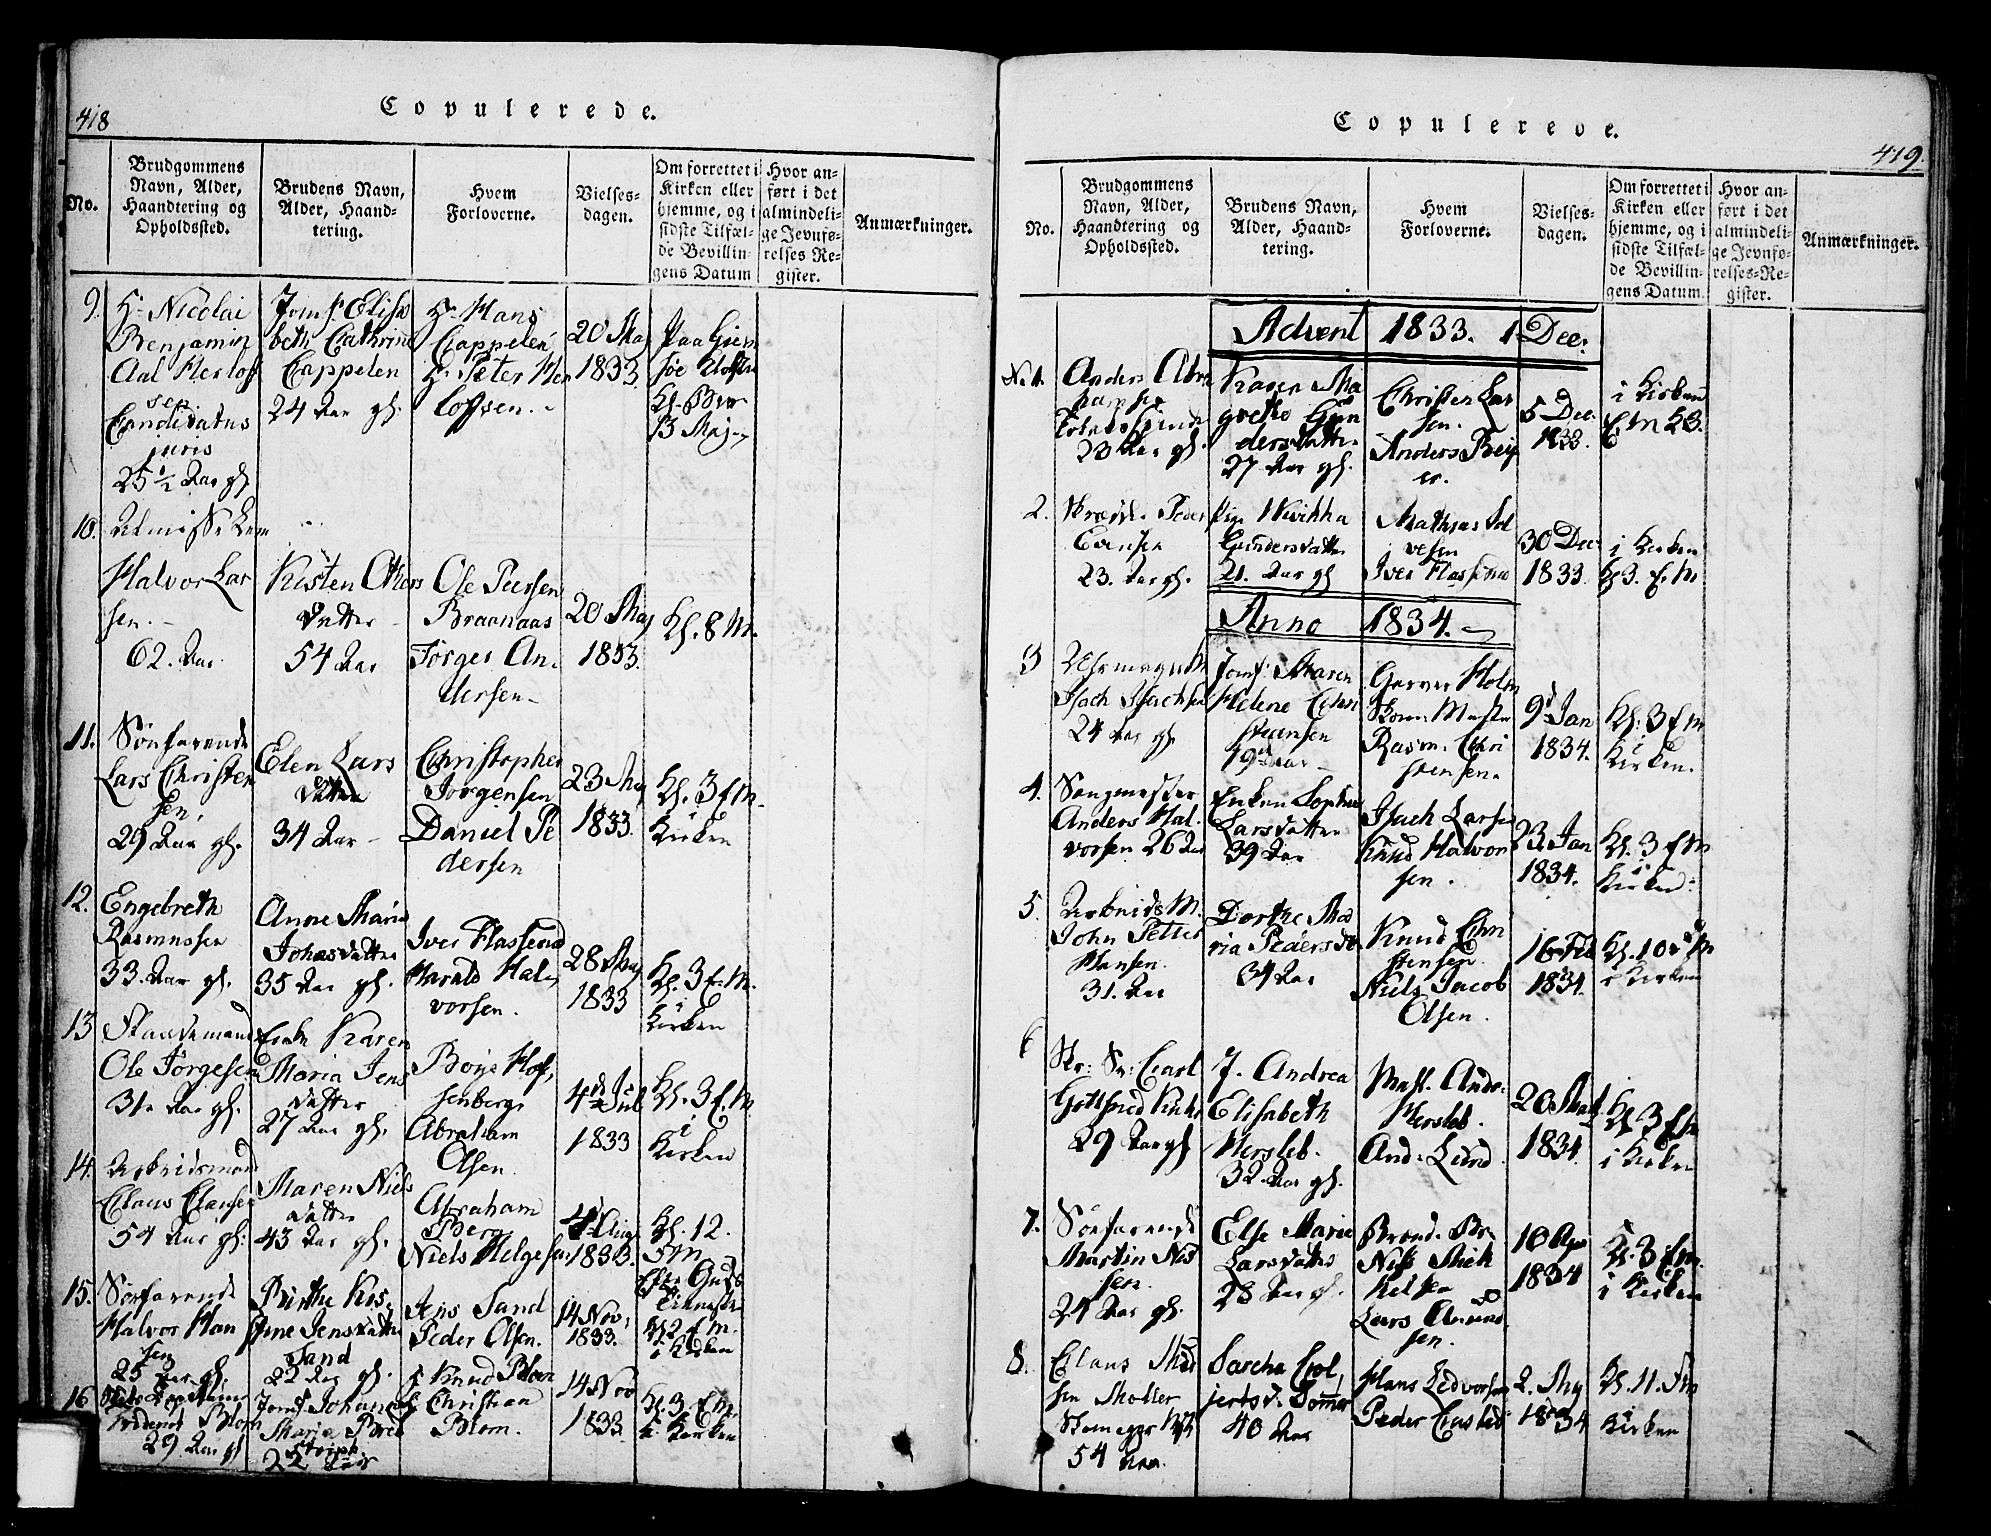 418
Copulerede.
No.
Brudgommens
Navn, Alder,
Haandtering og
Opholdssted.
Brudens Navn,
Alder, Haand-
tering.
Hvem
Forloverne.
Vielses-
dagen.
Om forrettet i
Kirken eller
hjemme, og i
sidste Tilfæl-
de Bevillin-
gens Datum
Hvor an-
ført i det
almindeli-
ge Jevnfø-
relses-Re-
gister.
Anmærkninger.
9.
Hr Nicolai
Benjamin
Aal Herlof
sen
Candidatus
juris
25 1/2 Aar gl
Jomf. Elisa
beth Cathrine
Cappelen
24 Aar gl.
Hr Hans
Cappelen
Hr Peter Her
lofsen.
20 Maj
1833
Paa
13 Maj
10.
Halvor Lar
sen.
62. Aar
Kisten
datter
54 Aar
Ole Pedersen
Braanaas
Jørgen An-
dersen
20 Maj
1833.
Kl. 8 M.
11.
Søefarende
Lars Christen
sen,
29 Aar gl.
Elen Lars
datter
34 Aar
Christopher
Jørgensen
Daniel Pe
dersen
23 Maj
1833.
Kl. 3 f M.
i
Kirken
12.
Engebreth
Rasmussen
33 Aar gl.
Anne Maria
Johasdatter
35 Aar gl.
Iver Flassend
Harald Hal-
vorsen.
28 Maj
1833
Kl. 3 f. M.
i
Kirken
13
Ole Jørgesen
31 Aar gl.
Enke Karen
Maria Jens
datter
27 Aar gl.
Børje Hof
senberg
Abraham
Olsen.
4de Jul
1833
Kl. 3 f. M
i
Kirken
14.
Arbeidsmand
Claus Clausen
54 Aar gl.
Maren Niels
datter
43 Aar gl.
Abraham
Berg
Niels Helgesen
4 Aug
1833.
Kl. 12.
f M.
Efter Guds
15.
Søefarende
Halvor Han
sen
25 Aar gl.
Birthe Kis-
tine Jensdatter
Sand
22 Aar gl.
Jens Sand
Peder Olsen.
14 Nov.
1833.
i Kirken
16
Frederik Blom
29. Aar gl
Jomf Johanne
Maria Bred
strøph
22 Aar
Knud Blom
Christian
Blom.
14 Nov
1833.
Kl. 3. f M.
i Kirken
Copulerede.
419.
No.
Brudgommens
Navn, Alder,
Haandtering og
Opholdssted.
Brudens Navn,
Alder, Haand-
tering.
Hvem
Forloverne.
Vielses-
dagen.
Om forrettet i
Kirken eller
hjemme, og i
sidste Tilfæl-
de Bevillin-
gens Datum.
Hvor an-
ført i det
almindeli-
ge Jevnfø-
relses-Re-
gister.
Anmærkninger.
Advent 1833. 1 Dec.
No 1.
Anders Abra
hamsen
23 Aar gl.
Karen Ma
grethe Gun
dersdatter
27 Aar gl.
Christen Lar
sen.
Anders Bey
er.
5 Dec.
1833.
i Kirken
2.
Skrædder Peder
Evensen
23. Aar gl.
Pige Wivikka
Gundersdatter
21. Aar gl
Mathias Sol
vesen
Iver Flassend
30 Dec
1833.
i Kirken
Kl 3. f. M
Anno 1834.
3
Isach Isachsen
24 Aar gl.
Jomf. Maren
Helene Chri
stiansen
19 Aar
Garver Holm
Rasm. Chri
stensen.
9d Jan
1834.
Kl. 3 f M
i
Kirken.
4.
Sangmester
Anders Hal.
vorsen 26 Aar
Enken Sophie
Larsdatter
39 Aar
Isach Larsen
Knud Halvor
sen.
23. Jan
1834.
Kl. 3 f M
i
Kirken
5.
Arbeids M.
John Petter
Hansen.
31. Aar
Dorthe Ma
ria Pedersd.
34 Aar
Knud Chri
stensen.
Niels Jacob
Olsen.
16 Feb
1834.
Kl. 10 f M
i Kirken
6
Carl
Gottfried
29 Aar gl
J. Andrea
Elisabeth
Hersleb.
32. Aar gl.
Hersleb.
And: Lund
1834.
Kl. 3 f M
i Kirken
7.
Søefarende
Martin Nis
sen.
24 Aar gl.
Else Marie
Larsdatter
28 Aar gl.
Lars Amund
sen.
10 Apr
1834
Kl. 3. f m.
i Kirken
8.
Claus
sen Møller
54 Aar
40 Aar
Hans Ledvorsen
Peder
2. Maj
1834
Kl. 11. f m
i
Kirken